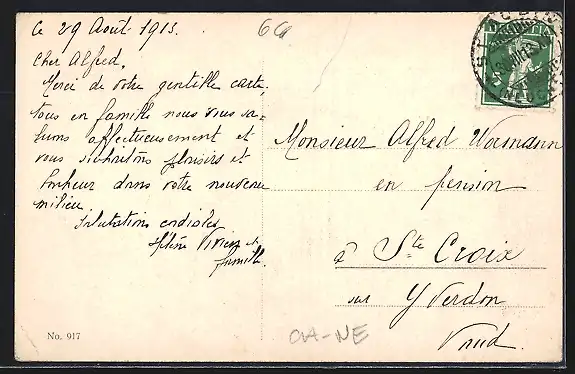 Ce 29 Août 1913.
Cher Alfred.
Merci de votre gentille carte.
tous en famille nous vous sa=
luons affectueusement et
vous souhaitons plaisirs et
bonheur dans votre nouveau
milieu
Salutations cordiales
Hélène et
famille.
No. 917
64
Monsieur Alfred
en pension
à Ste Croix
sur Yverdon
Vaud.
CH-NE